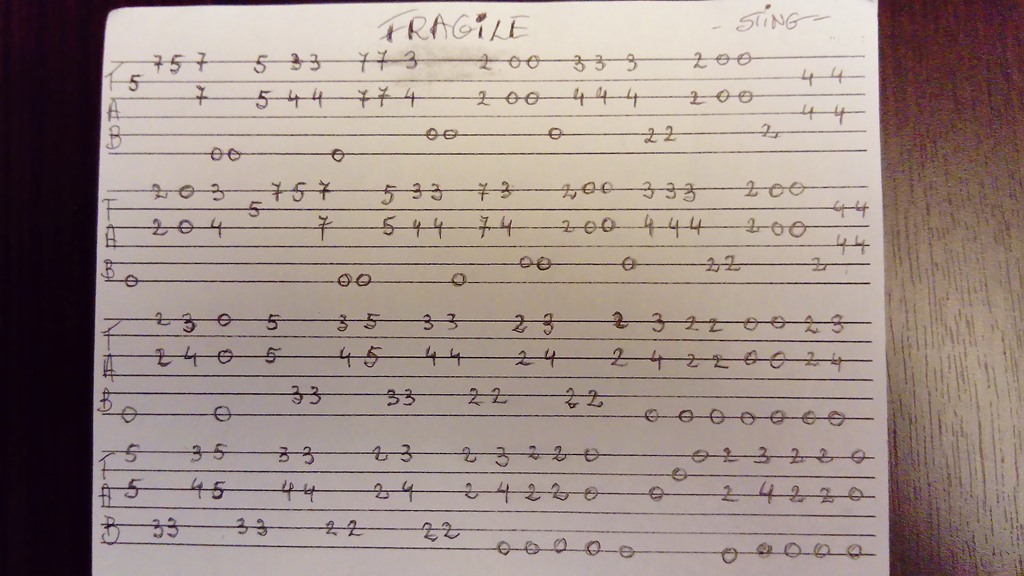 FRAGILE - STING -
7 5 7 5 3 3 7 7 3 2 0 0 3 3 3 2 0 0
T 5 4 4
A 7 5 4 4 7 7 4 2 0 0 4 4 4 2 0 0
4 4
B 0 0 0 2 2 2
0 0 0
2 0 3 7 5 7 5 3 3 7 3 2 0 0 3 3 3 2 0 0
T 5 4 4
A 2 0 4 7 5 4 4 7 4 2 0 0 4 4 4 2 0 0
4 4
B 0 0 0 2 2 2
0 0 0 0
2 3 0 5 3 5 3 3 2 3 2 3 2 2 0 0 2 3
T
A 2 4 0 5 4 5 4 4 2 4 2 4 2 2 0 0 2 4
B 3 3 3 3 2 2 2 2
0 0 0 0 0 0 0 0 0
5 3 5 3 3 2 3 2 3 2 2 0 0 2 3 2 2 0
T 0
A 5 4 5 4 4 2 4 2 4 2 2 0 0 2 4 2 2 0
B 3 3 3 3 2 2 2 2
0 0 0 0 0 0 0 0 0 0